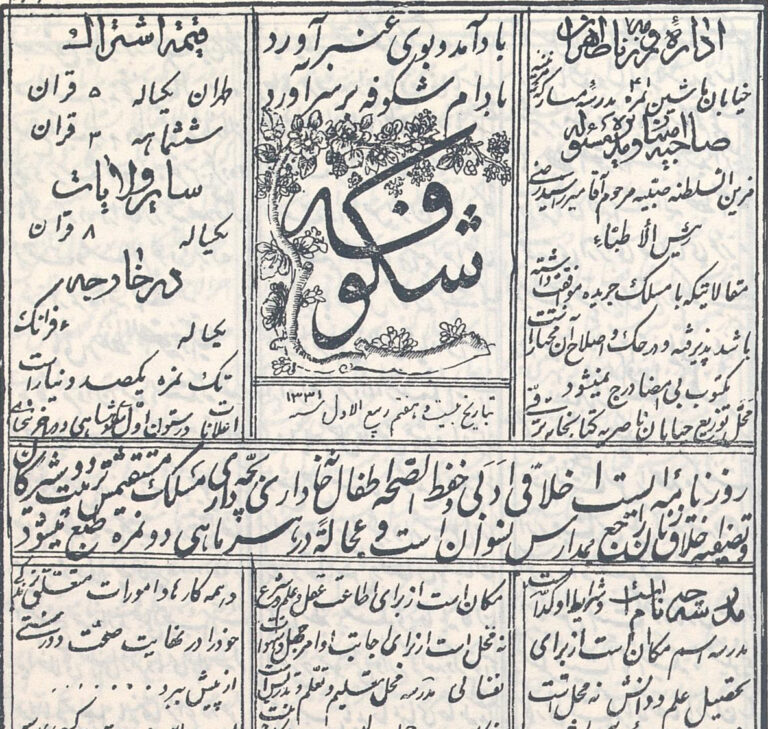 اداره و مرکز نامه طهران
خیابان ماشین نمره ۴ مدرسه مبارکه مزینیه
صاحب امتیاز و مدیر مسئوله
مزین السلطنه صبیه مرحوم آقا میرزا سید رضی
رئیس الأطباء
مقالاتیکه با مسلک جریده موافقت داشته
باشد پذیرفته و در حک و اصلاح آن مختار است
مکتوب بی امضا درج نمیشود
محل توزیع خیابان ناصریه کتابخانه ترقی
باد آمد و بوی عنبر آورد
بادام شکوفه بر سر آورد
شکوفه
بتاریخ بیست و هفتم ربیع الاول سنه ۱۳۳۱
قیمة اشتراک
طهران یکساله ۵ قران
ششماهه ۳ قران
سایر ولایات
یکساله ۸ قران
در خارجه
یکساله ۶ فرانک
تک نمره یکصد دینار است
اعلانات در ستون اول دوشاهی و در آخر
روزنامه ایست اخلاقی ادبی حفظ الصحه اطفال خانه داری بچه داری مسلک مستقیمش تربیت دوشیزگان
و تصفیه اخلاق زنان راجع بمدارس نسوان است و عجالة در هر سر ماهی دو نمره طبع میشود
مدرسه چه نام است و شرایط او کدام است
مدرسه اسم مکان است از برای
تحصیل علم و دانش نه محل است
مکان است از برای اطاعت عقل و علم و شرع
نه محل است از برای اجابت اوامر جهل و هوا
نفسانی مدرسه محل تسلیم و تعلم و تدریس است
در همه کارها و امورات متعلق
خود را در نهایت صحت و درستی
از پیش ببرد . . . . .